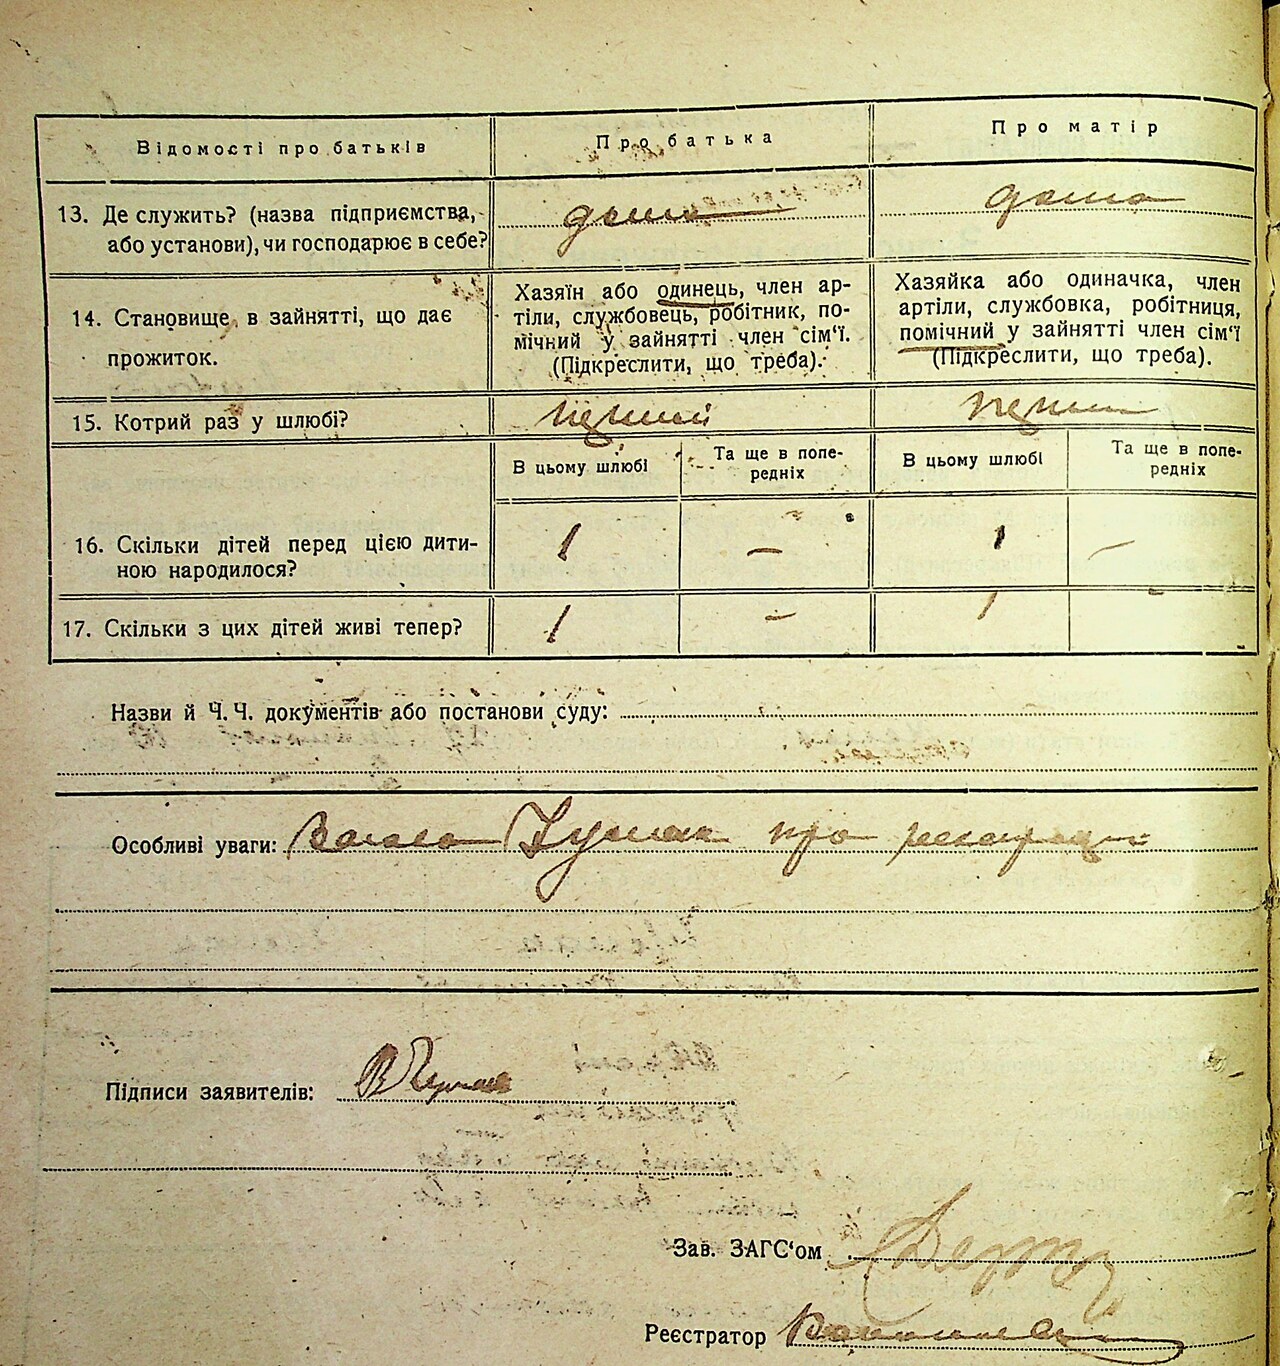 Відомості про батьків
Про батька
Про матір
13. Де служить? (назва підприємства,
або установи), чи господарює в себе?
дома
дома
14. Становище в зайнятті, що дає
прожиток.
Хазяїн або одинець, член ар-
тіли, службовець, робітник, по-
мічний у зайнятті член сім‘ї.
(Підкреслити, що треба).
Хазяйка або одиначка, член
артіли, службовка, робітниця,
помічний у зайнятті член сім‘ї
(Підкреслити, що треба).
15. Котрий раз у шлюбі?
перший
перший
В цьому шлюбі
Та ще в попе-
редніх
В цьому шлюбі
Та ще в попе-
редніх
16. Скільки дітей перед цією дити-
ною народилося?
1 — 1 —
17. Скільки з цих дітей живі тепер?
1 — 1
Назви й Ч. Ч. документів або постанови суду:
Особливі уваги: про
Підписи заявителів:
Зав. ЗАГС‘ом
Реєстратор